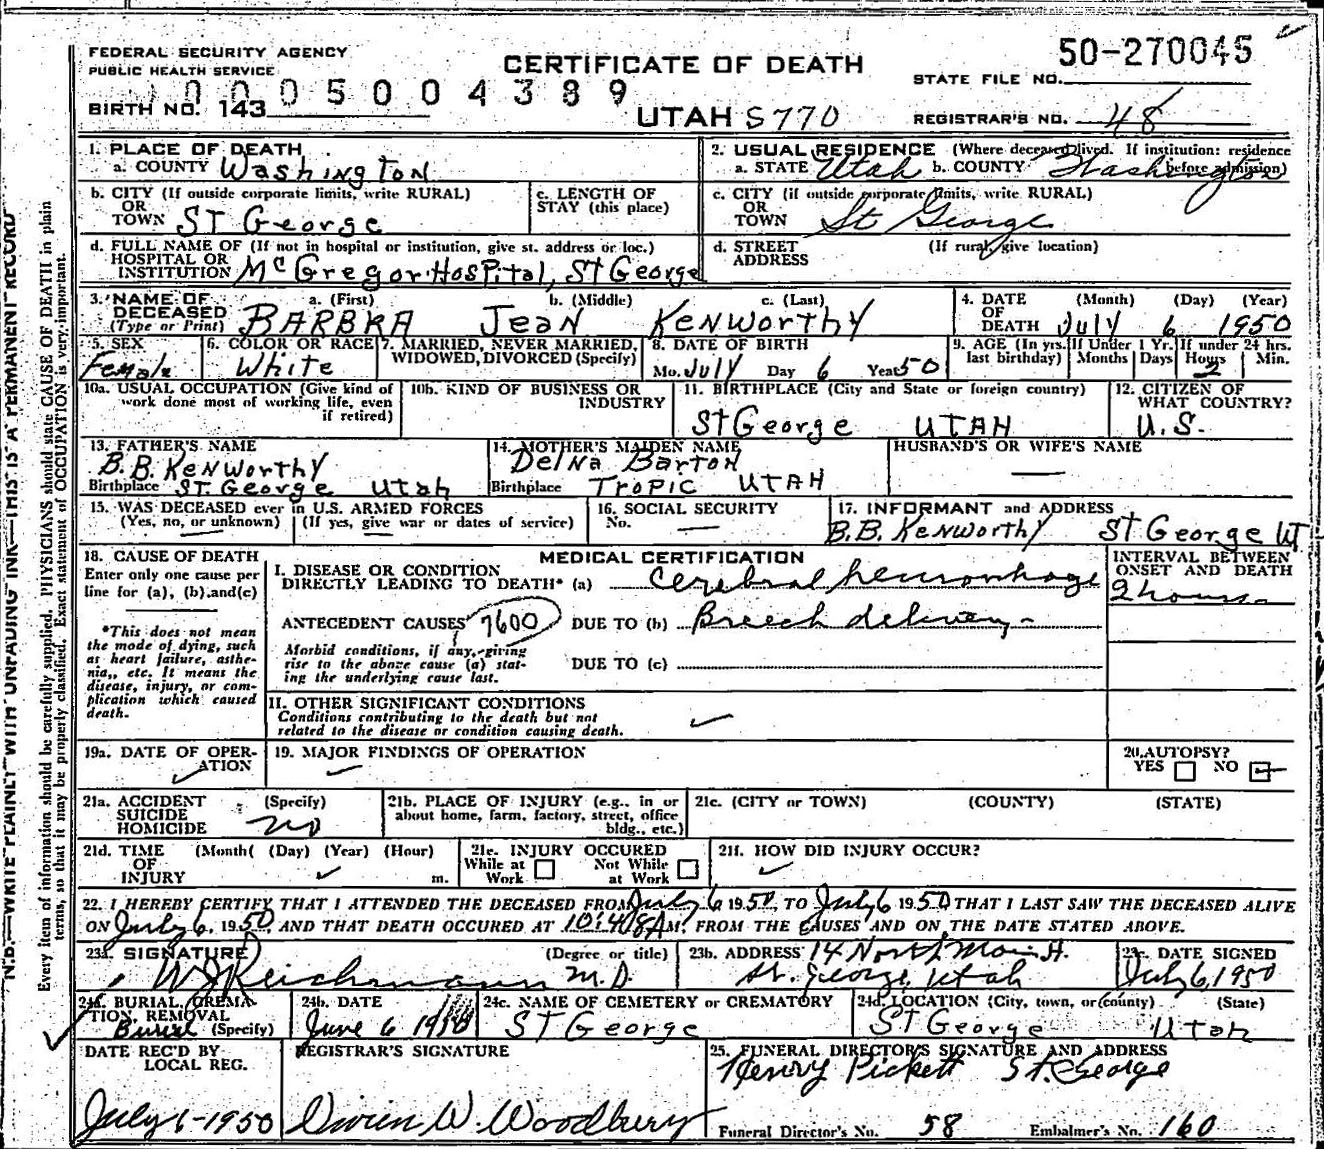 FEDERAL SECURITY AGENCY
PUBLIC HEALTH SERVICE
CERTIFICATE OF DEATH
50-270045
STATE FILE NO.
0005004389
BIRTH NO. 143
UTAH S770
REGISTRAR'S NO. 48
N.B.—WRITE PLAINLY—WITH UNFADING INK—THIS IS A PERMANENT RECORD
Every item of information should be carefully supplied. PHYSICIANS should state CAUSE OF DEATH in plain
terms, so that it may be properly classified. Exact statement of OCCUPATION is very important.
1. PLACE OF DEATH
a. COUNTY Washington
2. USUAL RESIDENCE (Where deceased lived. If institution: residence
a. STATE Utah b. COUNTY Washington before admission)
b. CITY (If outside corporate limits, write RURAL)
OR
TOWN ST George
c. LENGTH OF
STAY (this place)
c. CITY (if outside corporate limits, write RURAL)
OR
TOWN St George
d. FULL NAME OF (If not in hospital or institution, give st. address or loc.)
HOSPITAL OR
INSTITUTION McGregor Hospital, St George
d. STREET (If rural, give location)
ADDRESS
3. NAME OF a. (First) b. (Middle) c. (Last)
DECEASED
(Type or Print) BARBRA Jean Kenworthy
4. DATE (Month) (Day) (Year)
OF
DEATH July 6 1950
5. SEX
Female
6. COLOR OR RACE
White
7. MARRIED, NEVER MARRIED,
WIDOWED, DIVORCED (Specify)
8. DATE OF BIRTH
Mo. July Day 6 Year 50
9. AGE (In yrs. If Under 1 Yr. If under 24 hrs.
last birthday) Months Days Hours Min.
2
10a. USUAL OCCUPATION (Give kind of
work done most of working life, even
if retired)
10b. KIND OF BUSINESS OR
INDUSTRY
11. BIRTHPLACE (City and State or foreign country)
St George UTAH
12. CITIZEN OF
WHAT COUNTRY?
U.S.
13. FATHER'S NAME
B.B. Kenworthy
Birthplace St. George Utah
14. MOTHER'S MAIDEN NAME
Delna Barton
Birthplace Tropic UTAH
HUSBAND'S OR WIFE'S NAME
15. WAS DECEASED ever in U.S. ARMED FORCES
(Yes, no, or unknown) (If yes, give war or dates of service)
16. SOCIAL SECURITY
No.
17. INFORMANT and ADDRESS
B.B. Kenworthy St George Ut
18. CAUSE OF DEATH
Enter only one cause per
line for (a), (b), and (c)
*This does not mean
the mode of dying, such
as heart failure, asthe-
nia,, etc. It means the
disease, injury, or com-
plication which caused
death.
MEDICAL CERTIFICATION
I. DISEASE OR CONDITION
DIRECTLY LEADING TO DEATH* (a) Cerebral hemorrhage
INTERVAL BETWEEN
ONSET AND DEATH
2 hours
ANTECEDENT CAUSES 7600 DUE TO (b) Breech delivery
Morbid conditions, if any, giving
rise to the above cause (a) stat-
ing the underlying cause last.
DUE TO (c)
II. OTHER SIGNIFICANT CONDITIONS
Conditions contributing to the death but not
related to the disease or condition causing death.
19a. DATE OF OPER-
ATION
19. MAJOR FINDINGS OF OPERATION
20. AUTOPSY?
YES NO
21a. ACCIDENT (Specify)
SUICIDE
HOMICIDE no
21b. PLACE OF INJURY (e.g., in or
about home, farm, factory, street, office
bldg., etc.)
21c. (CITY or TOWN) (COUNTY) (STATE)
21d. TIME (Month( (Day) (Year) (Hour)
OF
INJURY m.
21e. INJURY OCCURED
While at Not While
Work at Work
21f. HOW DID INJURY OCCUR?
22. I HEREBY CERTIFY THAT I ATTENDED THE DECEASED FROM July 6 1950, TO July 6 1950 THAT I LAST SAW THE DECEASED ALIVE
ON July 6, 1950, AND THAT DEATH OCCURED AT 10:48A M. FROM THE CAUSES AND ON THE DATE STATED ABOVE.
23a. SIGNATURE (Degree or title)
W J Reichmann M.D.
23b. ADDRESS 14 North Main St.
St. George, Utah
23c. DATE SIGNED
July 6, 1950
24a. BURIAL, CREMA-
TION, REMOVAL
Burial (Specify)
24b. DATE
June 6 1950
24c. NAME OF CEMETERY or CREMATORY
ST George
24d. LOCATION (City, town, or county) (State)
ST George Utah
DATE REC'D BY
LOCAL REG.
July 6-1950
REGISTRAR'S SIGNATURE
W. Woodbury
25. FUNERAL DIRECTOR'S SIGNATURE AND ADDRESS
Henry Pickett St. George
Funeral Director's No. 58 Embalmer's No. 160